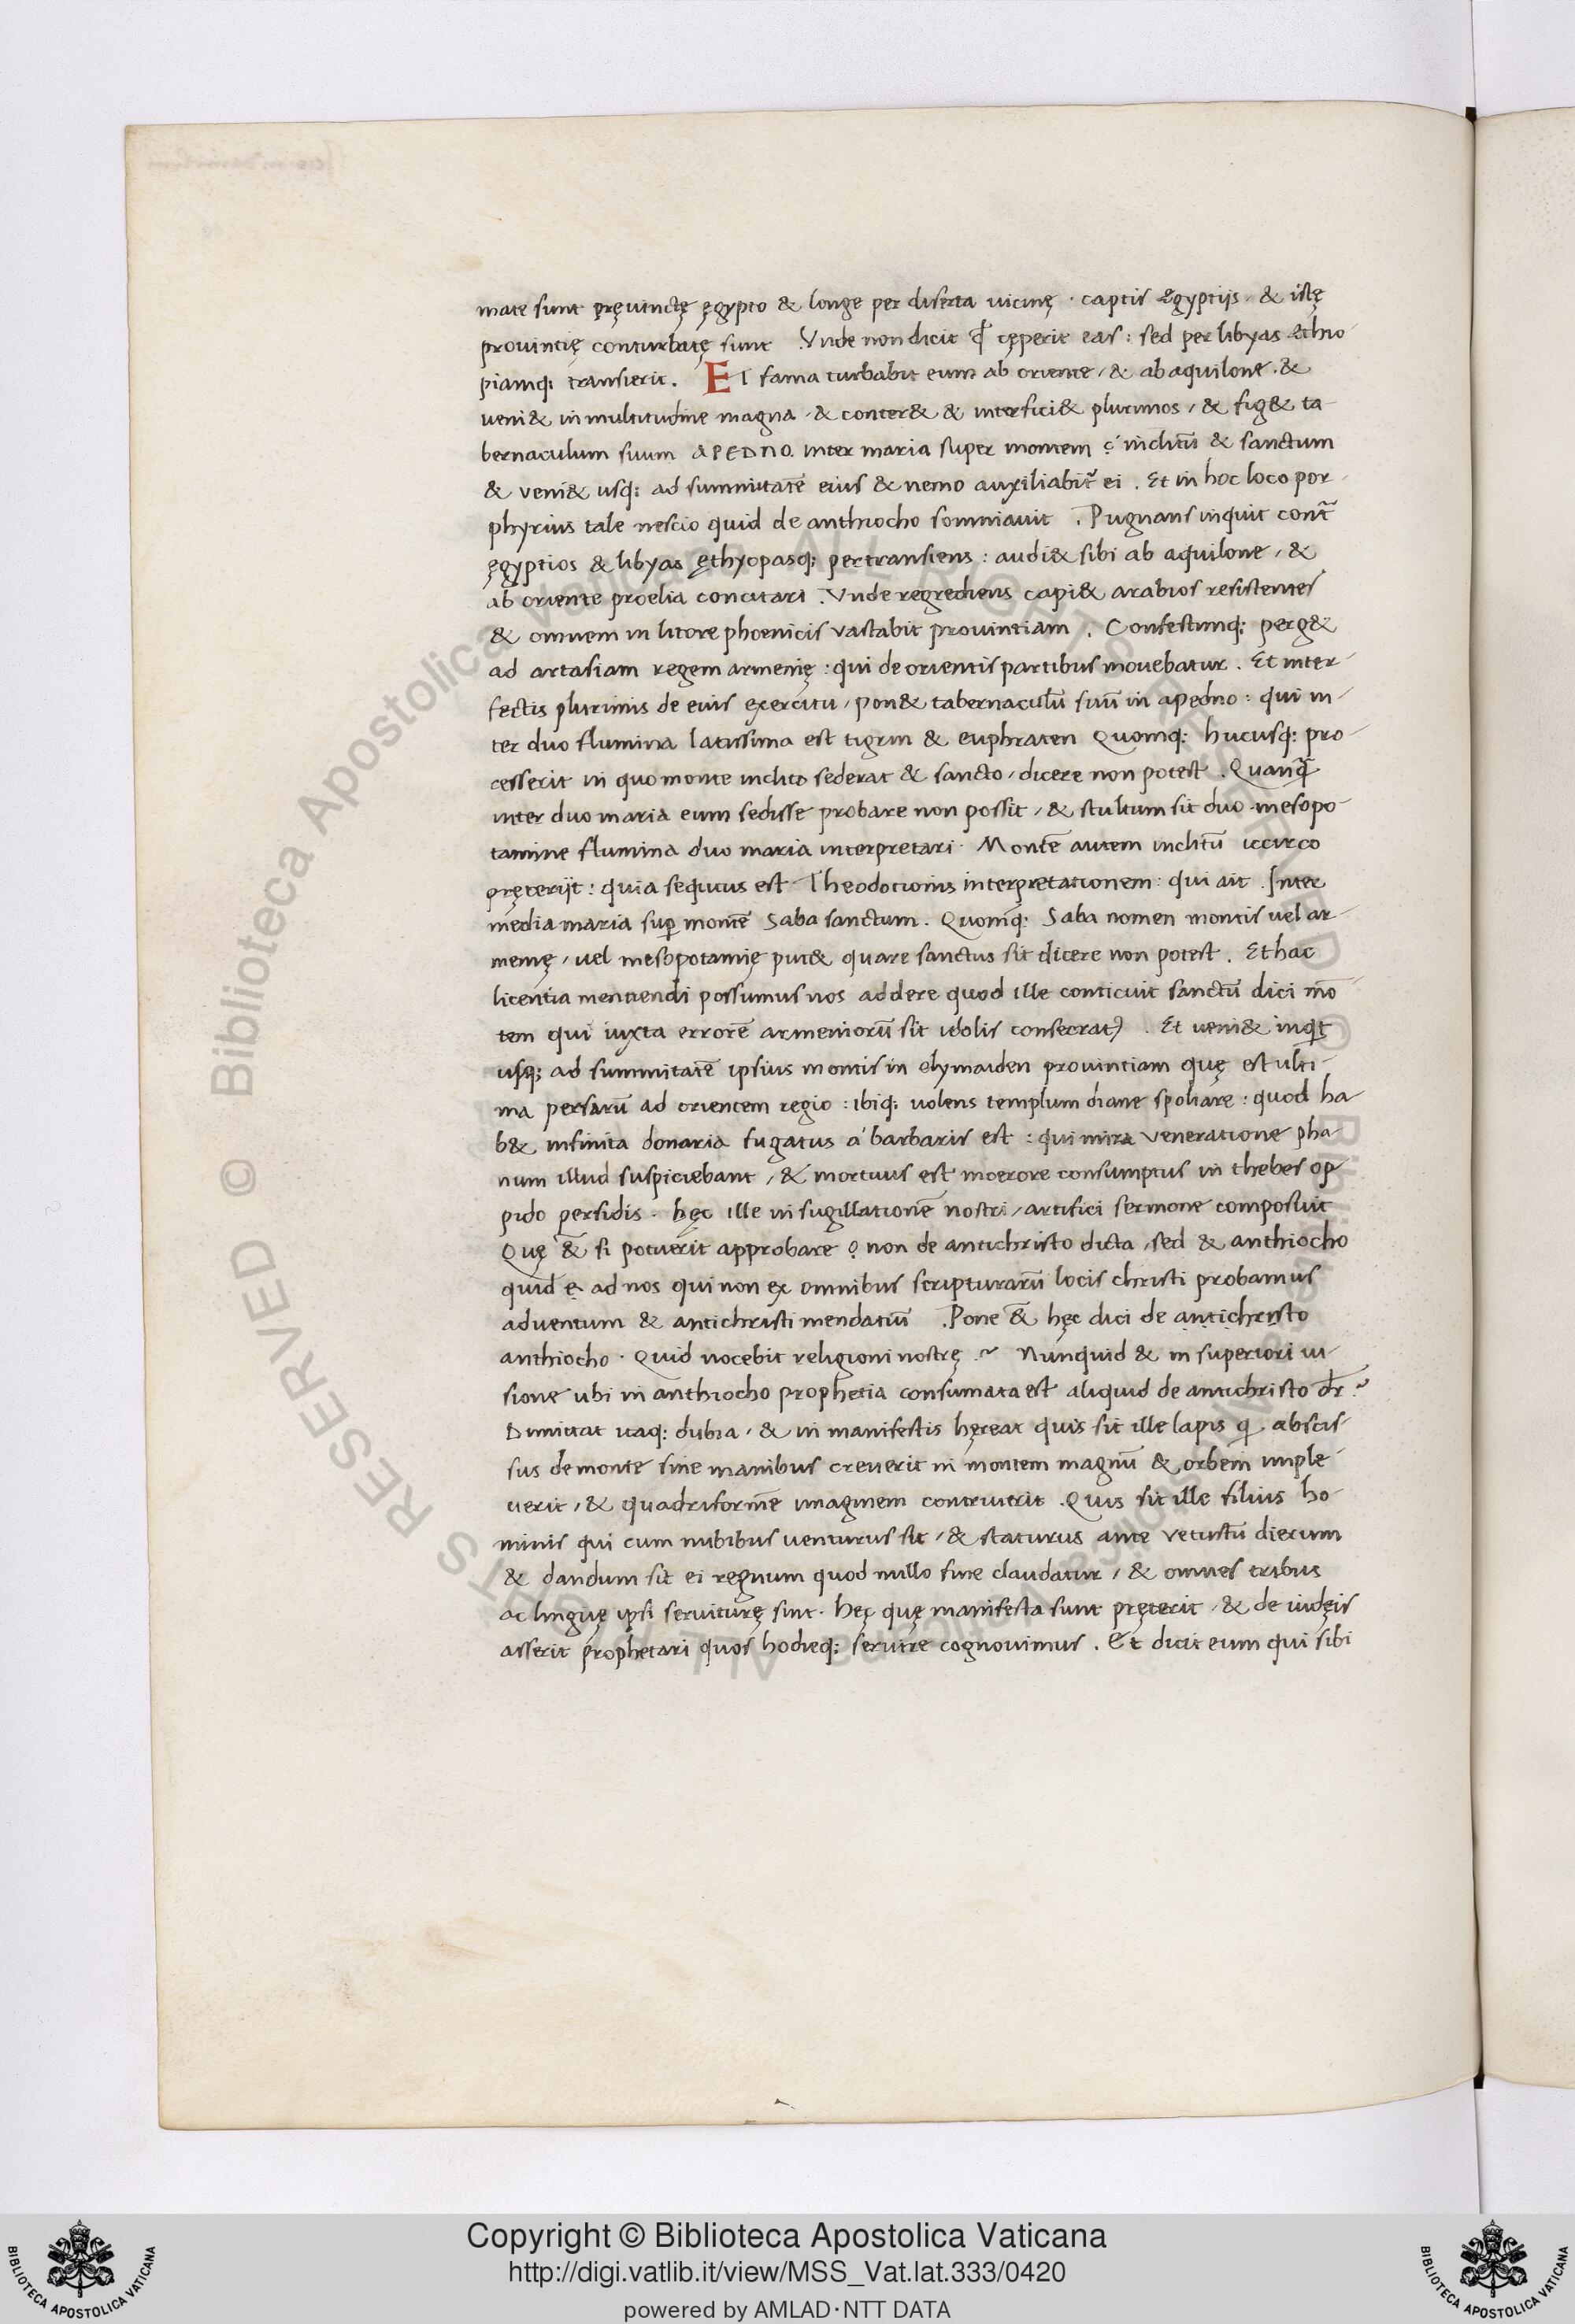 mate sunt pręuinctę ęgypto & longe per diserta uicinę · captis Ęgyptijs, & istę
prouincię conturbatę sunt . Vnde non dicit ꝙ cęperit eas : sed per libyas Æthio-
piamq; transierit . ET fama turbabit eum ab oriente, & ab aquilone, &
ueni& in multitudine magna, & conter& & interfici& plurimos, & fig& ta-
bernaculum suum APEDNO. inter maria super montem inclitū & sanctum
& veni& usq; ad summitatē eius & nemo auxiliabit᷑ ei . Et in hoc loco por-
phyrius tale nescio quid de anthiocho somniauit . Pugnans inquit cont᷑
ęgyptios & libyas ęthyopasq; pertransiens : audi& sibi ab aquilone, &
ab oriente proelia concitari . Vnde regrediens capi& arabios resistentes
& omnem in litore phoenicis vastabit prouintiam . Confestimq; perg&
ad artasiam regem armenię : qui de orientis partibus mouebatur . Et inter-
fectis plurimis de eius exercitu, pon& tabernaculū suū in apedno : qui in-
ter duo flumina latissima est tigrin & euphraten Quomq; hucusq; pro-
cesserit in quo monte inclito sederat & sancto, dicere non potest . Quanq̄
inter duo maria eum sedisse probare non possit, & stultum sit duo mesopo-
tamine flumina duo maria interpretari · Montē autem inclitū iccirco
pręterijt : quia sequtus est Theodotionis interpretationem : qui ait . Inter
media maria suꝑ montē Saba sanctum . Quomq; Saba nomen montis uel ar-
menię, uel mesopotamię put& quare sanctus sit dicere non potest . Et hac
licentia mentiendi possumus nos addere quod ille conticuit sanctū dici mō-
tem qui iuxta errorē armeniorū sit idolis consecratꝰ . Et ueni& inqt
usq; ad summitatē ipsius montis in elymaiden prouintiam quę est ulti-
ma persarū ad orientem regio : ibiq; uolens templum diane spoliare : quod ha-
b& infinita donaria fugatus a' barbaris est : qui mira veneratione pha-
num illud suspiciebant, & mortuus est moerore consumptus in thebes op-
pido persidis . hęc ille in sugillationē nostri, artifici sermone composuit
Quę &̄ si potuerit approbare non de antichristo dicta, sed & anthiocho
quid ē ad nos qui non ex omnibus scripturarū locis christi probamus
aduentum & antichristi mendatiū . Pone &̄ hęc dici de antichristo
anthiocho · Quid nocebit religioni nostrę ? Nunquid & in superiori ui-
sione ubi in anthiocho prophetia consumata est aliquid de antichristo dr̄ ?
Dimittat itaq; dubia, & in manifestis hęreat quis sit ille lapis q abscis-
sus de monte sine manibus creuerit in montem magnū & orbem imple-
uerit, & quadriformē imaginem contriuerit . Quis sit ille filius ho-
minis qui cum nubibus uenturus sit, & staturus ante vetustū dierum
& dandum sit ei regnum quod nullo fine claudatur, & omnes tribus
ac linguę ipsi seruiturę sint . hęc quę manifesta sunt pręterit, & de iudęis
asserit prophetari quos hodieq; seruire cognouimus . Et dicit eum qui sibi
Copyright © Biblioteca Apostolica Vaticana
http://digi.vatlib.it/view/MSS_Vat.lat.333/0420
powered by AMLAD·NTT DATA
BIBLIOTECA APOSTOLICA VATICANA
BIBLIOTECA APOSTOLICA VATICANA